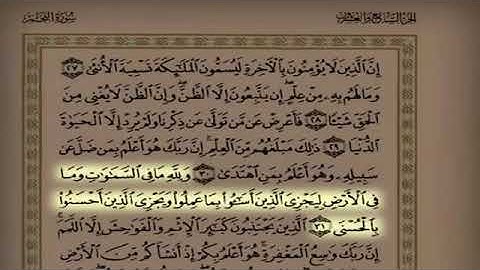 الجزء السابع والعشرون
سورة النجم
إِنَّ ٱلَّذِينَ لَا يُؤْمِنُونَ بِٱلْءَاخِرَةِ لَيُسَمُّونَ ٱلْمَلَٰٓئِكَةَ تَسْمِيَةَ ٱلْأُنثَىٰ ٢٧
وَمَا لَهُم بِهِۦ مِنْ عِلْمٍ ۖ إِن يَتَّبِعُونَ إِلَّا ٱلظَّنَّ ۖ وَإِنَّ ٱلظَّنَّ لَا يُغْنِى مِنَ
ٱلْحَقِّ شَيْـًٔا ٢٨ فَأَعْرِضْ عَن مَّن تَوَلَّىٰ عَن ذِكْرِنَا وَلَمْ يُرِدْ إِلَّا ٱلْحَيَوٰةَ
ٱلدُّنْيَا ٢٩ ذَٰلِكَ مَبْلَغُهُم مِّنَ ٱلْعِلْمِ ۚ إِنَّ رَبَّكَ هُوَ أَعْلَمُ بِمَن ضَلَّ عَن
سَبِيلِهِۦ وَهُوَ أَعْلَمُ بِمَنِ ٱهْتَدَىٰ ٣٠ وَلِلَّهِ مَا فِى ٱلسَّمَٰوَٰتِ وَمَا
فِى ٱلْأَرْضِ لِيَجْزِىَ ٱلَّذِينَ أَسَٰٓـُٔوا۟ بِمَا عَمِلُوا۟ وَيَجْزِىَ ٱلَّذِينَ أَحْسَنُوا۟
بِٱلْحُسْنَى ٣١ ٱلَّذِينَ يَجْتَنِبُونَ كَبَٰٓئِرَ ٱلْإِثْمِ وَٱلْفَوَٰحِشَ إِلَّا ٱللَّمَمَ ۚ
إِنَّ رَبَّكَ وَٰسِعُ ٱلْمَغْفِرَةِ ۚ هُوَ أَعْلَمُ بِكُمْ إِذْ أَنشَأَكُم مِّنَ ٱلْأَرْضِ